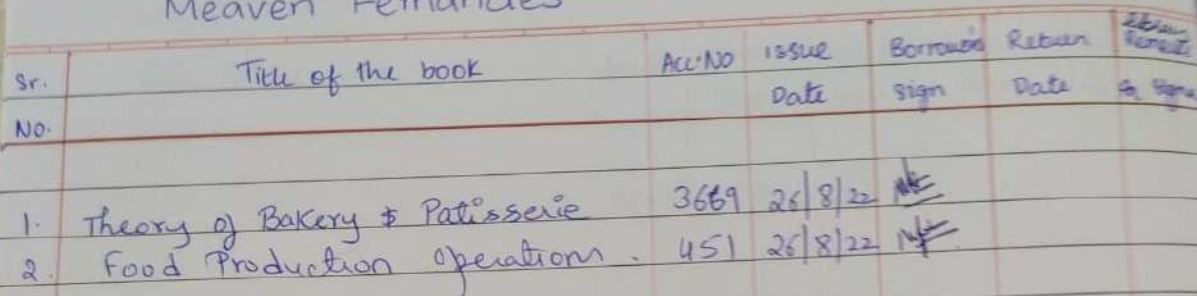 Meaven Fernandes
Sr. Title of the book Acc.No Issue Borrower's Return
No. Date sign Date & Sign
1. Theory of Bakery & Patisserie 3669 26/8/22
2. Food Production Operations. 451 26/8/22